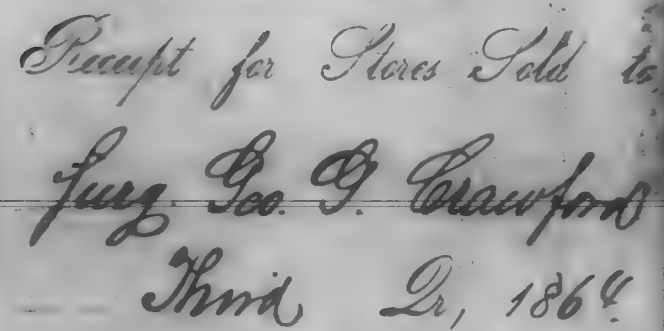 Receipt for Stores Sold to
Surg. Geo. G. Crawford
Third Qr, 1864.